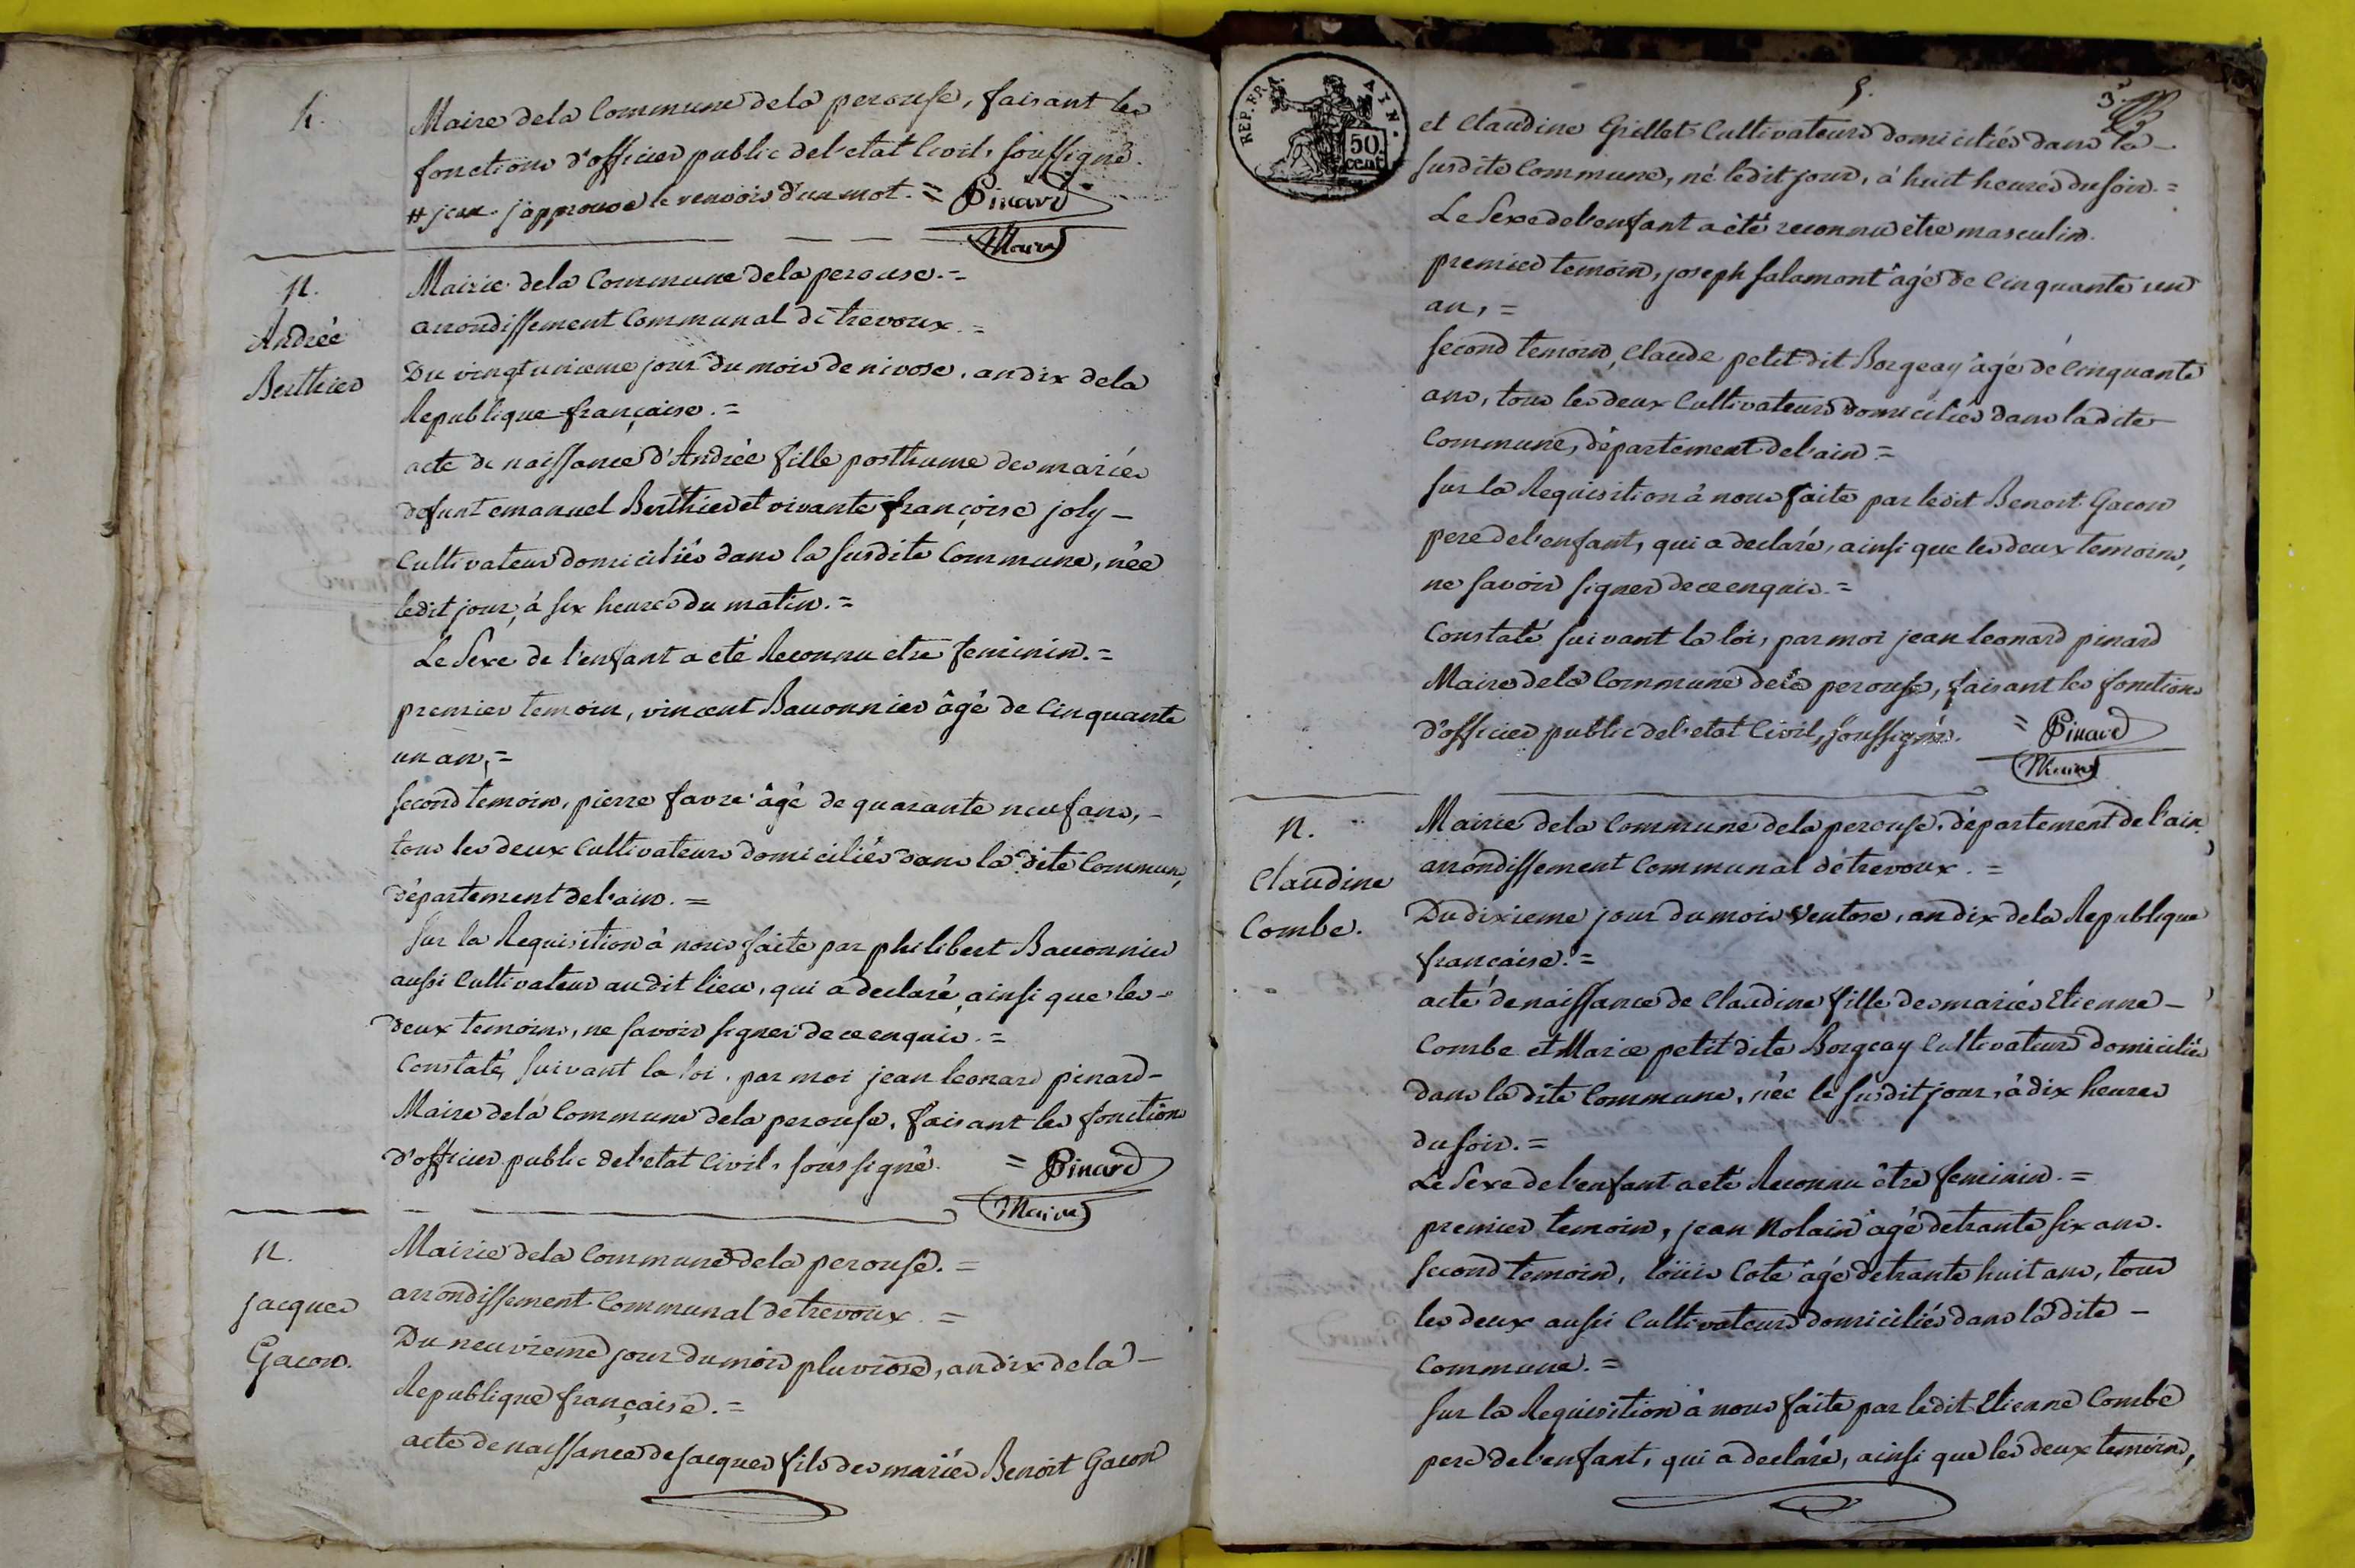 4.
Maire dela Commune dela perouse, faisant les
fonctions d'officier public del'etat Civil, soussigné.
# jean. j'approuve le renvois d'un mot. = Pinard
Maire
N.
Andrée
Berthier
Mairie dela Commune dela perouse. =
arrondissement Communal de trevoux. =
Du vingt unieme jour du mois de nivose, an dix dela
Republique française. =
acte de naissance d'Andrée fille posthume des mariés
defunt emanuel Berthier et vivante françoise joly -
Cultivateurs domiciliés dans la susdite Commune, née
ledit jour, à six heures du matin. =
Le Sexe de l'enfant a eté Reconnu etre feminin. =
premier temoin, vincent Bauonnier âgé de Cinquante
un an, =
second temoin, pierre favre âgé de quarante neuf ans, -
tous les deux Cultivateurs domiciliés dans la dite Commune,
département del'ain. =
sur la Requisition à nous faite par philibert Bauonnier
aussi Cultivateur audit lieu, qui a declaré, ainsi que les -
deux temoins, ne savoir signer de ce enquis. =
Constaté, suivant la loi, par moi jean leonard pinard -
Maire dela Commune dela perouse, faisant les fonctions
d'officier public del'etat Civil, sous signé. = Pinard
Maire
N.
jacques
Gacon.
Mairie dela Commune dela perouse. =
arrondissement Communal de trevoux. =
Du neuvieme jour du mois pluviose, an dix dela -
Republique française. =
acte de naissance de jacques fils des mariés Benoit Gacon
REP. FRA. AIN.
50.
cent
5.
3
et Claudine Grillet Cultivateurs domiciliés dans la -
susdite Commune, né ledit jour, à huit heures du soir. =
Le Sexe del'enfant a été reconnu etre masculin.
premier temoin, joseph salamont âgé de Cinquante un
an, =
second temoin, Claude petit dit Borgeay âgé de Cinquante
ans, tous les deux Cultivateurs domiciliés dans ladite -
Commune, département del'ain =
sur la Requisition à nous faite par ledit Benoit Gacon
pere del'enfant, qui a declaré, ainsi que les deux temoins,
ne savoir signer de ce enquis. =
Constaté suivant la loi, par moi jean leonard pinard
Maire dela Commune dela perouse, faisant les fonctions
d'officier public del'etat Civil, soussigné. = Pinard
Maire
N.
Claudine
Combe.
Mairie dela Commune dela perouse, département de l'ain,
arrondissement Communal de trevoux. =
Du dixieme jour du mois Ventose, an dix dela Republique
française. =
acte de naissance de Claudine fille des mariés Etienne -
Combe et Marie petit dite Borgeay Cultivateurs domiciliés
dans ladite Commune, née le susdit jour, à dix heures
du soir. =
Le Sexe del'enfant a eté Reconnu être feminin. =
premier temoin, jean Nolain âgé de trante six ans.
second temoin, loüis Cote âgé de trante huit ans, tous
les deux aussi Cultivateurs domiciliés dans la dite -
Commune. =
sur la Requisition à nous faite par ledit Etienne Combe
pere del'enfant, qui a declaré, ainsi que les deux temoins,